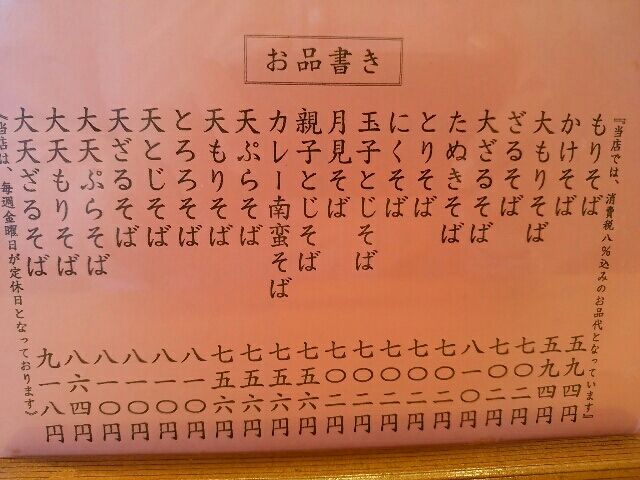 お品書き
『当店では、消費税八%込みのお品代となっています』
もりそば 五九四円
かけそば 五九四円
大もりそば 七〇二円
ざるそば 七〇二円
大ざるそば 八一〇円
たぬきそば 七〇二円
とりそば 七〇二円
にくそば 七〇二円
玉子とじそば 七〇二円
月見そば 七〇二円
親子とじそば 七五六円
カレー南蛮そば 七五六円
天ぷらそば 七五六円
天もりそば 七五六円
とろろそば 八一〇円
天とじそば 八一〇円
天ざるそば 八一〇円
大天ぷらそば 八一〇円
大天もりそば 八六四円
大天ざるそば 九一八円
〈当店は、毎週金曜日が定休日となっております〉